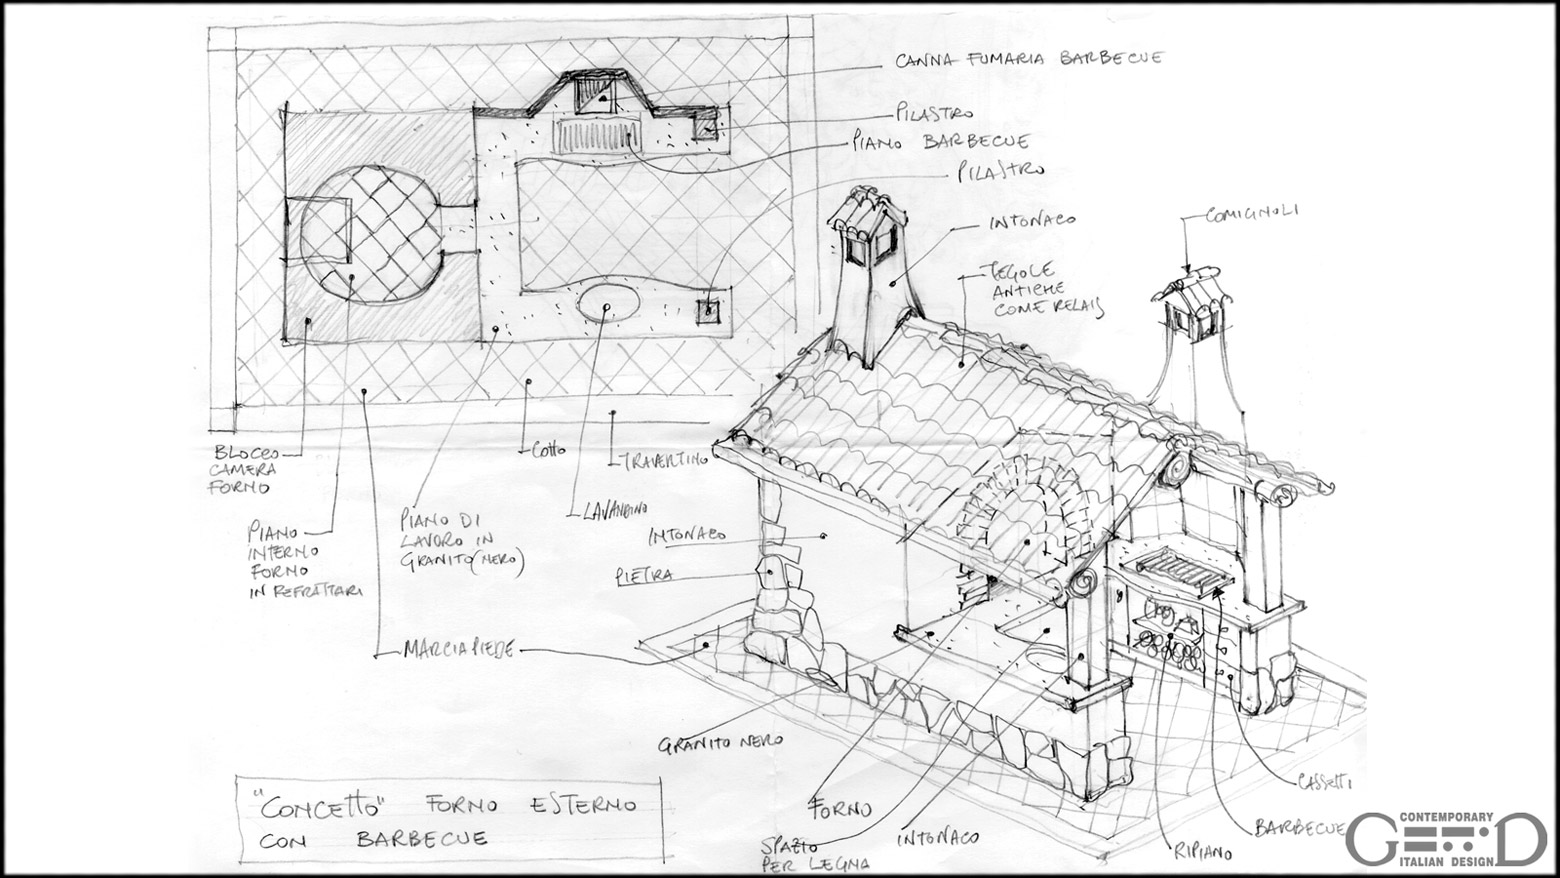 CANNA FUMARIA BARBECUE
PILASTRO
PIANO BARBECUE
PILASTRO
INTONACO
COMIGNOLI
TEGOLE
ANTICHE
COME RELAIS
BLOCCO
CAMERA
FORNO
COTTO
TRAVERTINO
PIANO
INTERNO
FORNO
IN REFRATTARI
PIANO DI
LAVORO IN
GRANITO (NERO)
LAVANDINO
INTONACO
PIETRA
MARCIAPIEDE
GRANITO NERO
"CONCETTO" FORNO ESTERNO
CON BARBECUE
FORNO
SPAZIO
PER LEGNA
INTONACO
RIPIANO
BARBECUE
CASSETTI
CONTEMPORARY
ITALIAN DESIGN